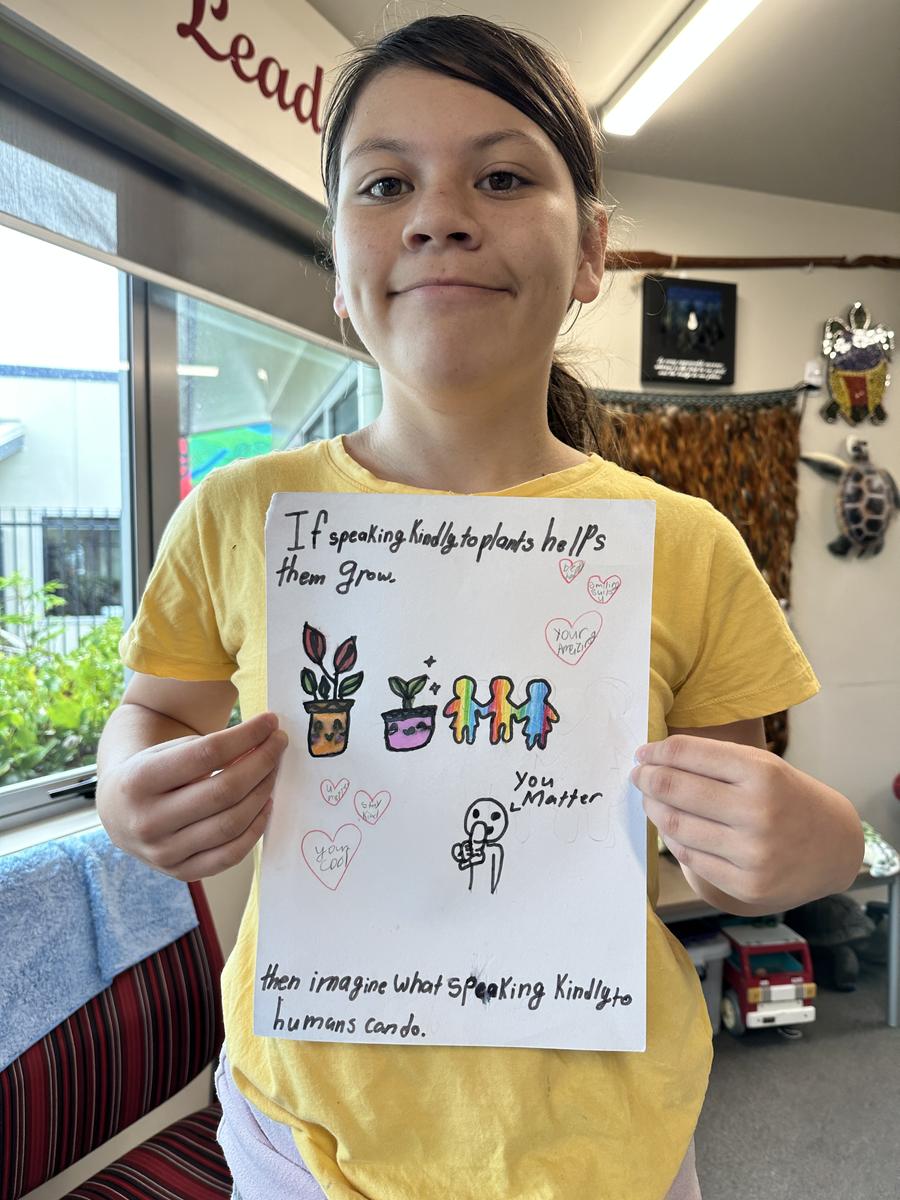 Lead
If speaking kindly to plants helps
them grow.
Your
Amazing
You
Matter
Stay
Kind
your
cool
then imagine what speaking kindly to
humans can do.